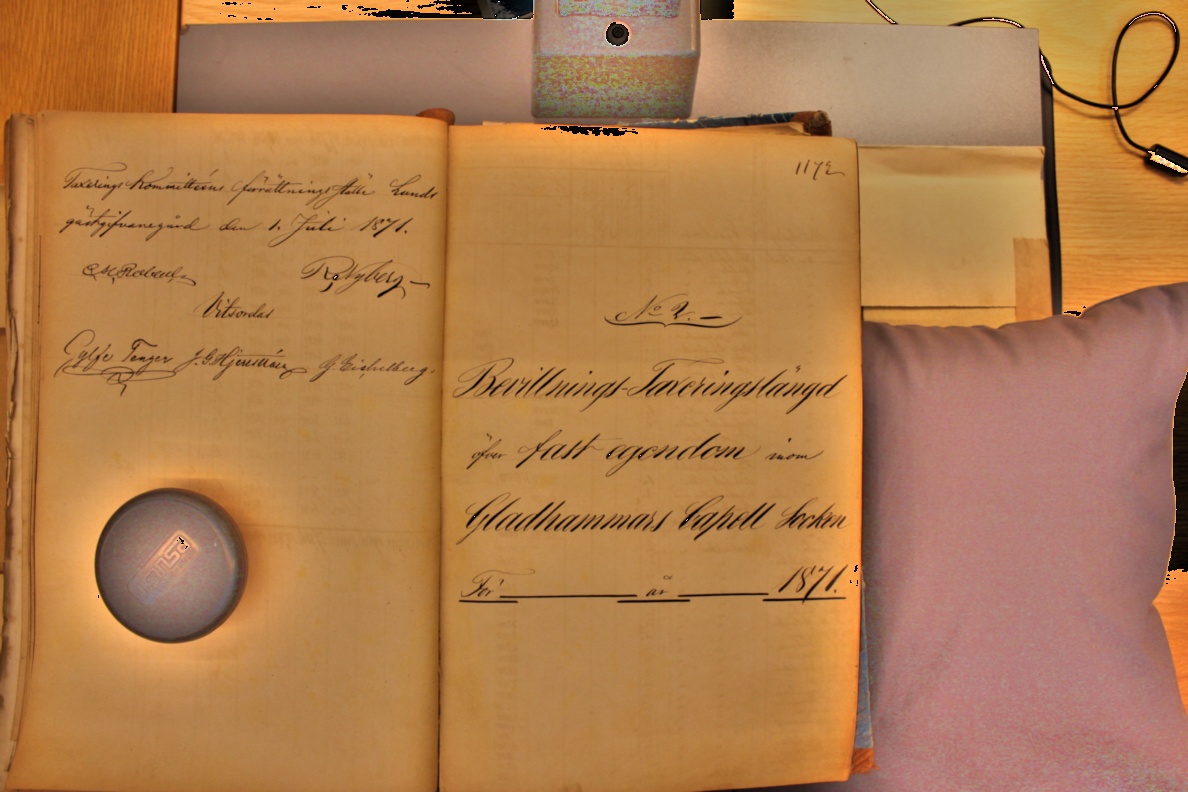 Taxerings Kommitteens förrättnings ställe Lunds
gästgifvaregård den 1. Juli 1871.
R. Nyberg
Gylfe Tenger J. G. Hjertstrån G. Eichelberg.
1172
No 2.
Bevillnings-Taxeringslängd
öfver fast egendom inom
Gladhammars Capell Socken
För år 1871.